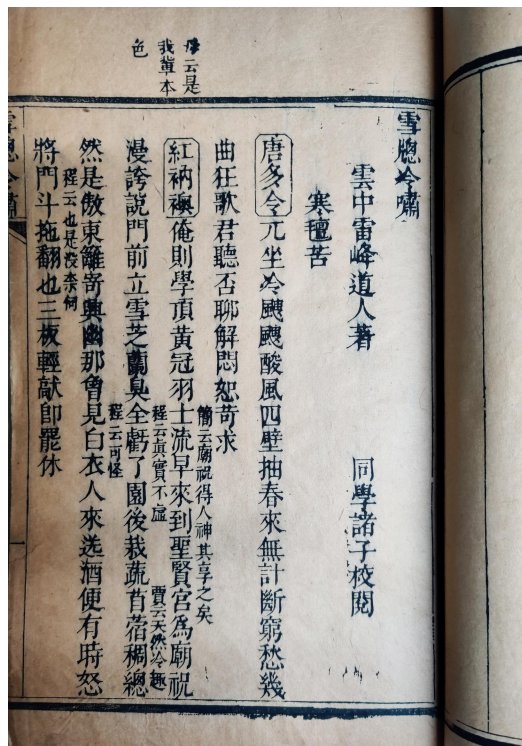 雪牕冷嘯
雲中雷峰道人著 同學諸子校閱
寒氊苦
唐多令 兀坐冷颼颼酸風四壁抽春來無計斷窮愁幾
曲狂歌君聽否聊解悶恕苛求
簡云廟祝得人神其享之矣
紅衲襖 俺則學頂黃冠羽士流早來到聖賢宮為廟祝
程云真實不虛 賈云天然冷趣
漫誇說門前立雪芝蘭臭全虧了園後栽蔬苜蓿稠總
程云可怪
然是傲東籬奇興幽那曾見白衣人來送酒便有時怒
程云也是沒柰何
將門斗拖翻也三板輕敲卽罷休
云是
我輩本
色
雪牕冷嘯